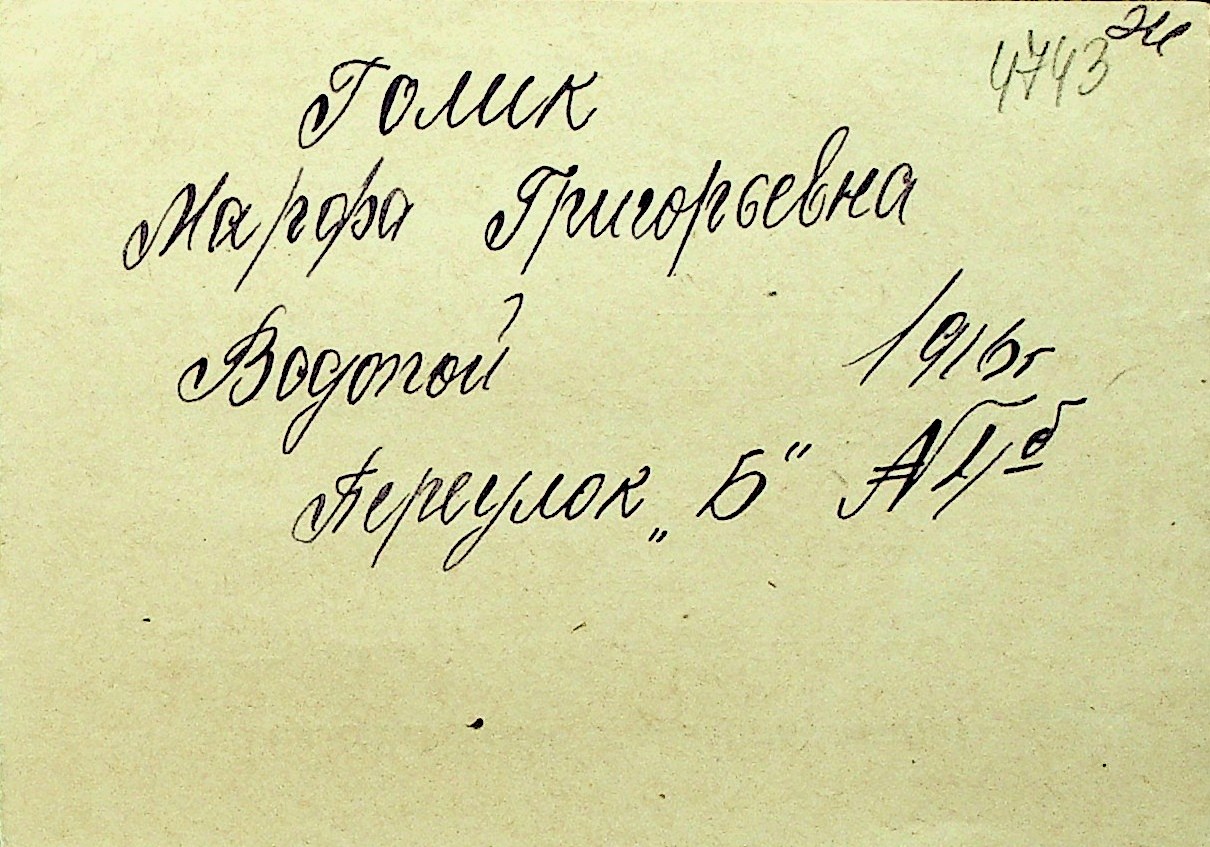 4743 эк
Голик
Марфа Григорьевна
Водопой 1916г
Переулок „Б“ №